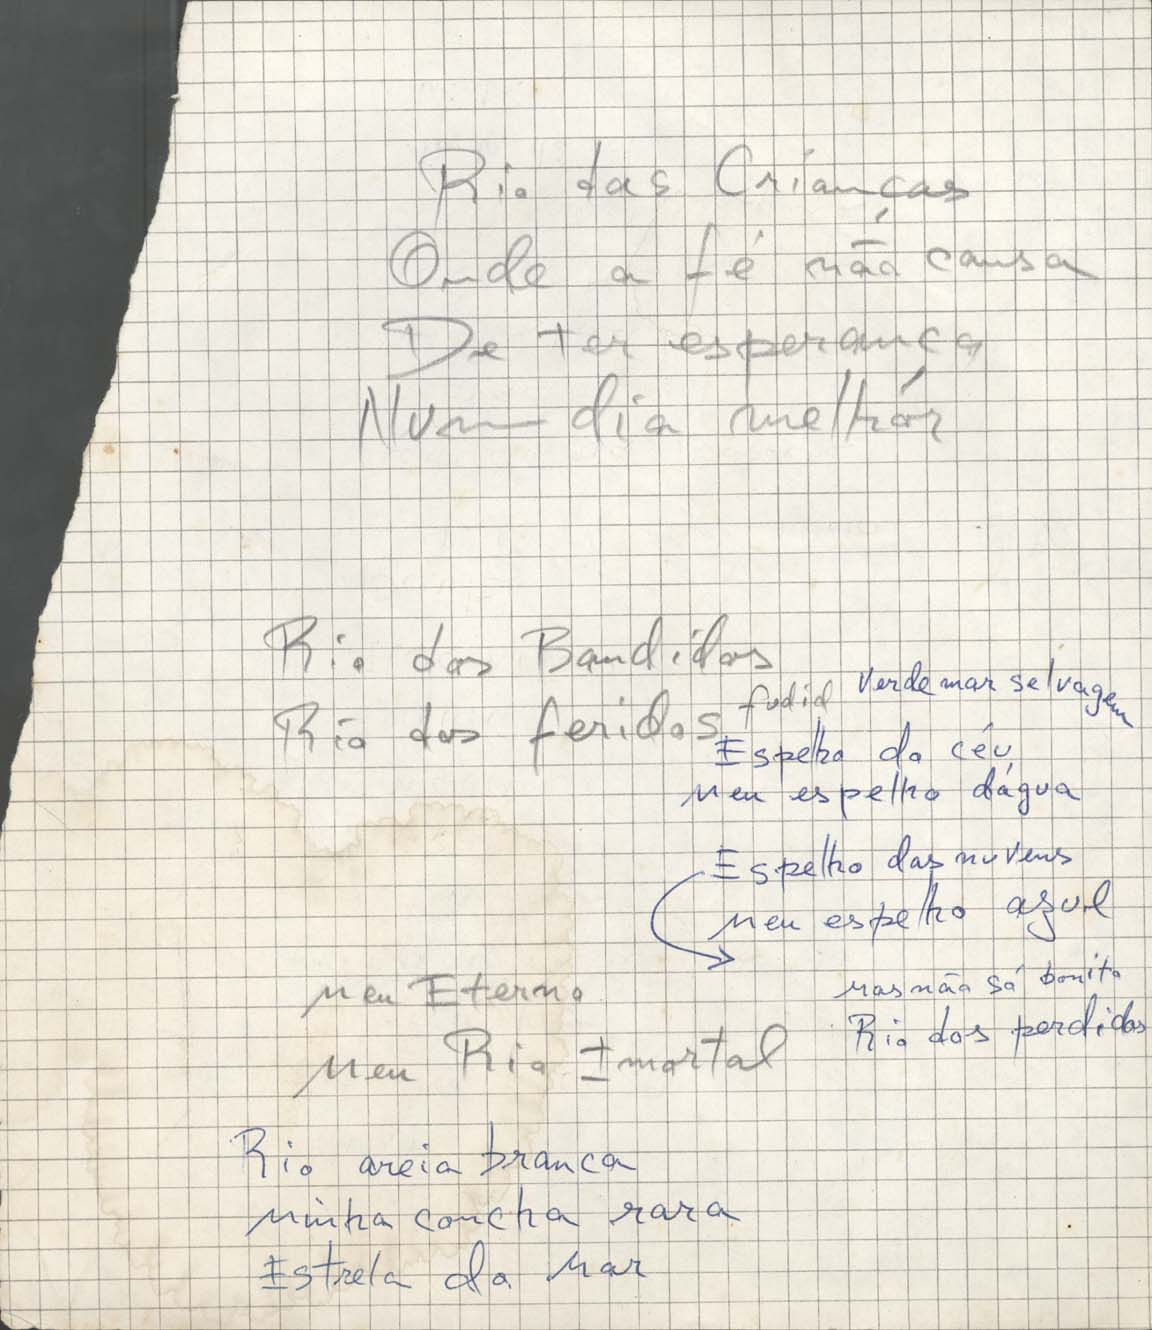 Rio das Crianças
Onde a fé não cansa
De ter esperança
Num dia melhór
Rio dos Bandidos
Rio dos feridos fudid
verde mar selvagem
Espelho do céu
meu espelho dágua
Espelho das nuvens
meu espelho azul
mas não só bonito
Rio dos perdidos
Meu Eterno
Meu Rio Imortal
Rio areia branca
minha concha rara
Estrela do Mar